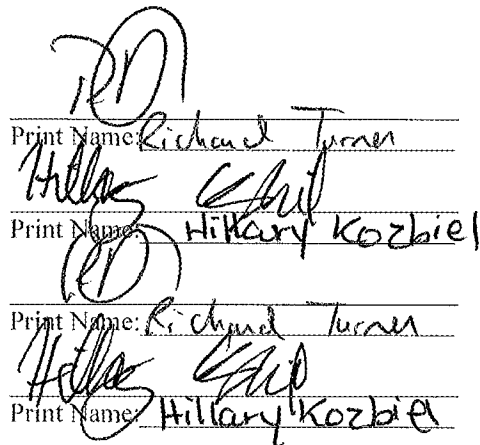 Print Name: Richard Turner
Print Name: Hillary Kozbiel
Print Name: Richard Turner
Print Name: Hillary Kozbiel